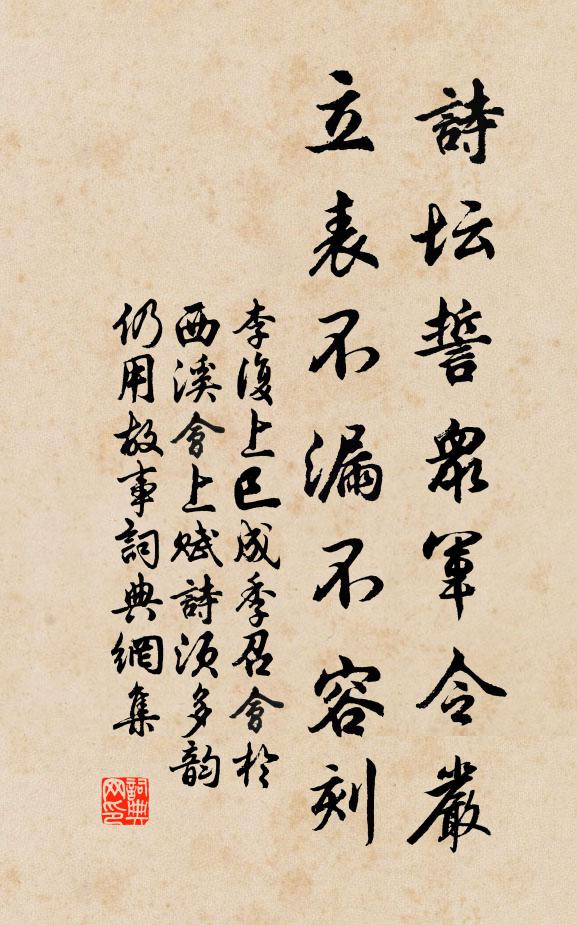 詩坛誓眾軍令嚴
立表不漏不容刻
李復上巳成季召會於
西溪會上賦詩須多韵
仍用故事詞典網集
詞典网印